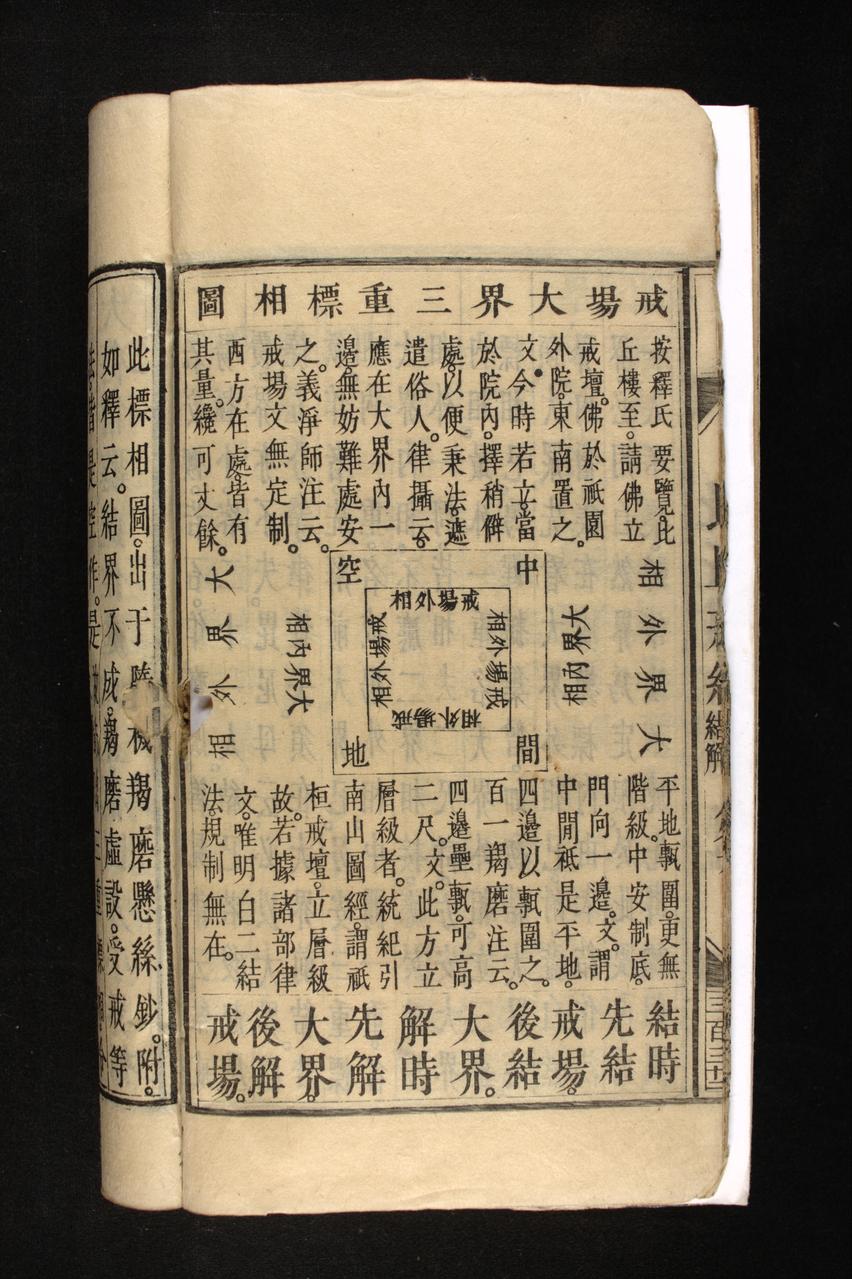 戒場大界三重標相圖
按釋氏要覽。比
丘樓至。請佛立
戒壇。佛於祇園
外院。東南置之。
文今時若立。當
於院內。擇稍僻
處。以便秉法。遮
遣俗人。律攝云。
應在大界內一
邊。無妨難處安
之。義淨師注云。
戒場文無定制。
西方在處。皆有
其量。纔可丈餘。
大界外相
大界外相
大界內相
大界內相
中間空地
戒場外相
戒場外相
戒場外相
戒場外相
平地甎圍。更無
階級。中安制底。
門向一邊。文。謂
中間祇是平地。
四邊以甎圍之。
百一羯磨注云。
四邊壘甎。可高
二尺。文。此方立
層級者。統紀引
南山圖經。謂祇
桓戒壇。立層級
故。若據諸部律
文。唯明白二結
法。規制無在。
結時
先結
戒場。
後結
大界。
解時
先解
大界。
後解
戒場。
結解
三百三十二
此標相圖。出于 羯磨懸絲鈔。附
如釋云。結界不成。羯磨虛設。受戒等